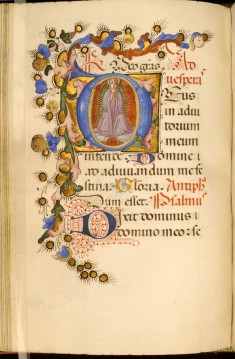 R Deo gr̄as. Ad
uespera᷒
Deus
in adiu
torium
meum
intende. Domine
ad adiuuandum me fe
stina. Gloria. Antiph᷒
Dum esset. Psalmu᷒
Dixit dominus
domino meo: se